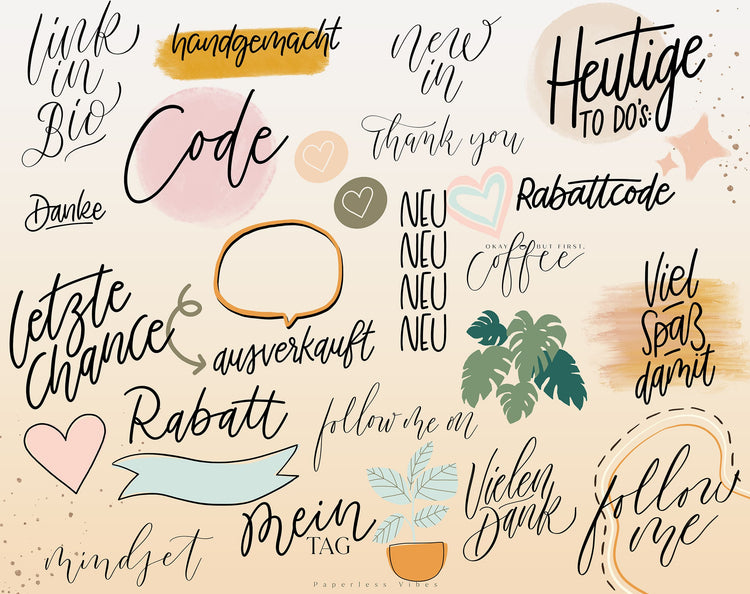 link
in
Bio
handgemacht
new
in
Heutige
TO DO'S:
Code
Thank you
Danke
Rabattcode
NEU
NEU
NEU
NEU
OKAY BUT FIRST,
coffee
Viel
Spaß
damit
letzte
Chance
ausverkauft
Rabatt
follow me on
Vielen
Dank
follow
me
mein
TAG
mindset
Paperless Vibes